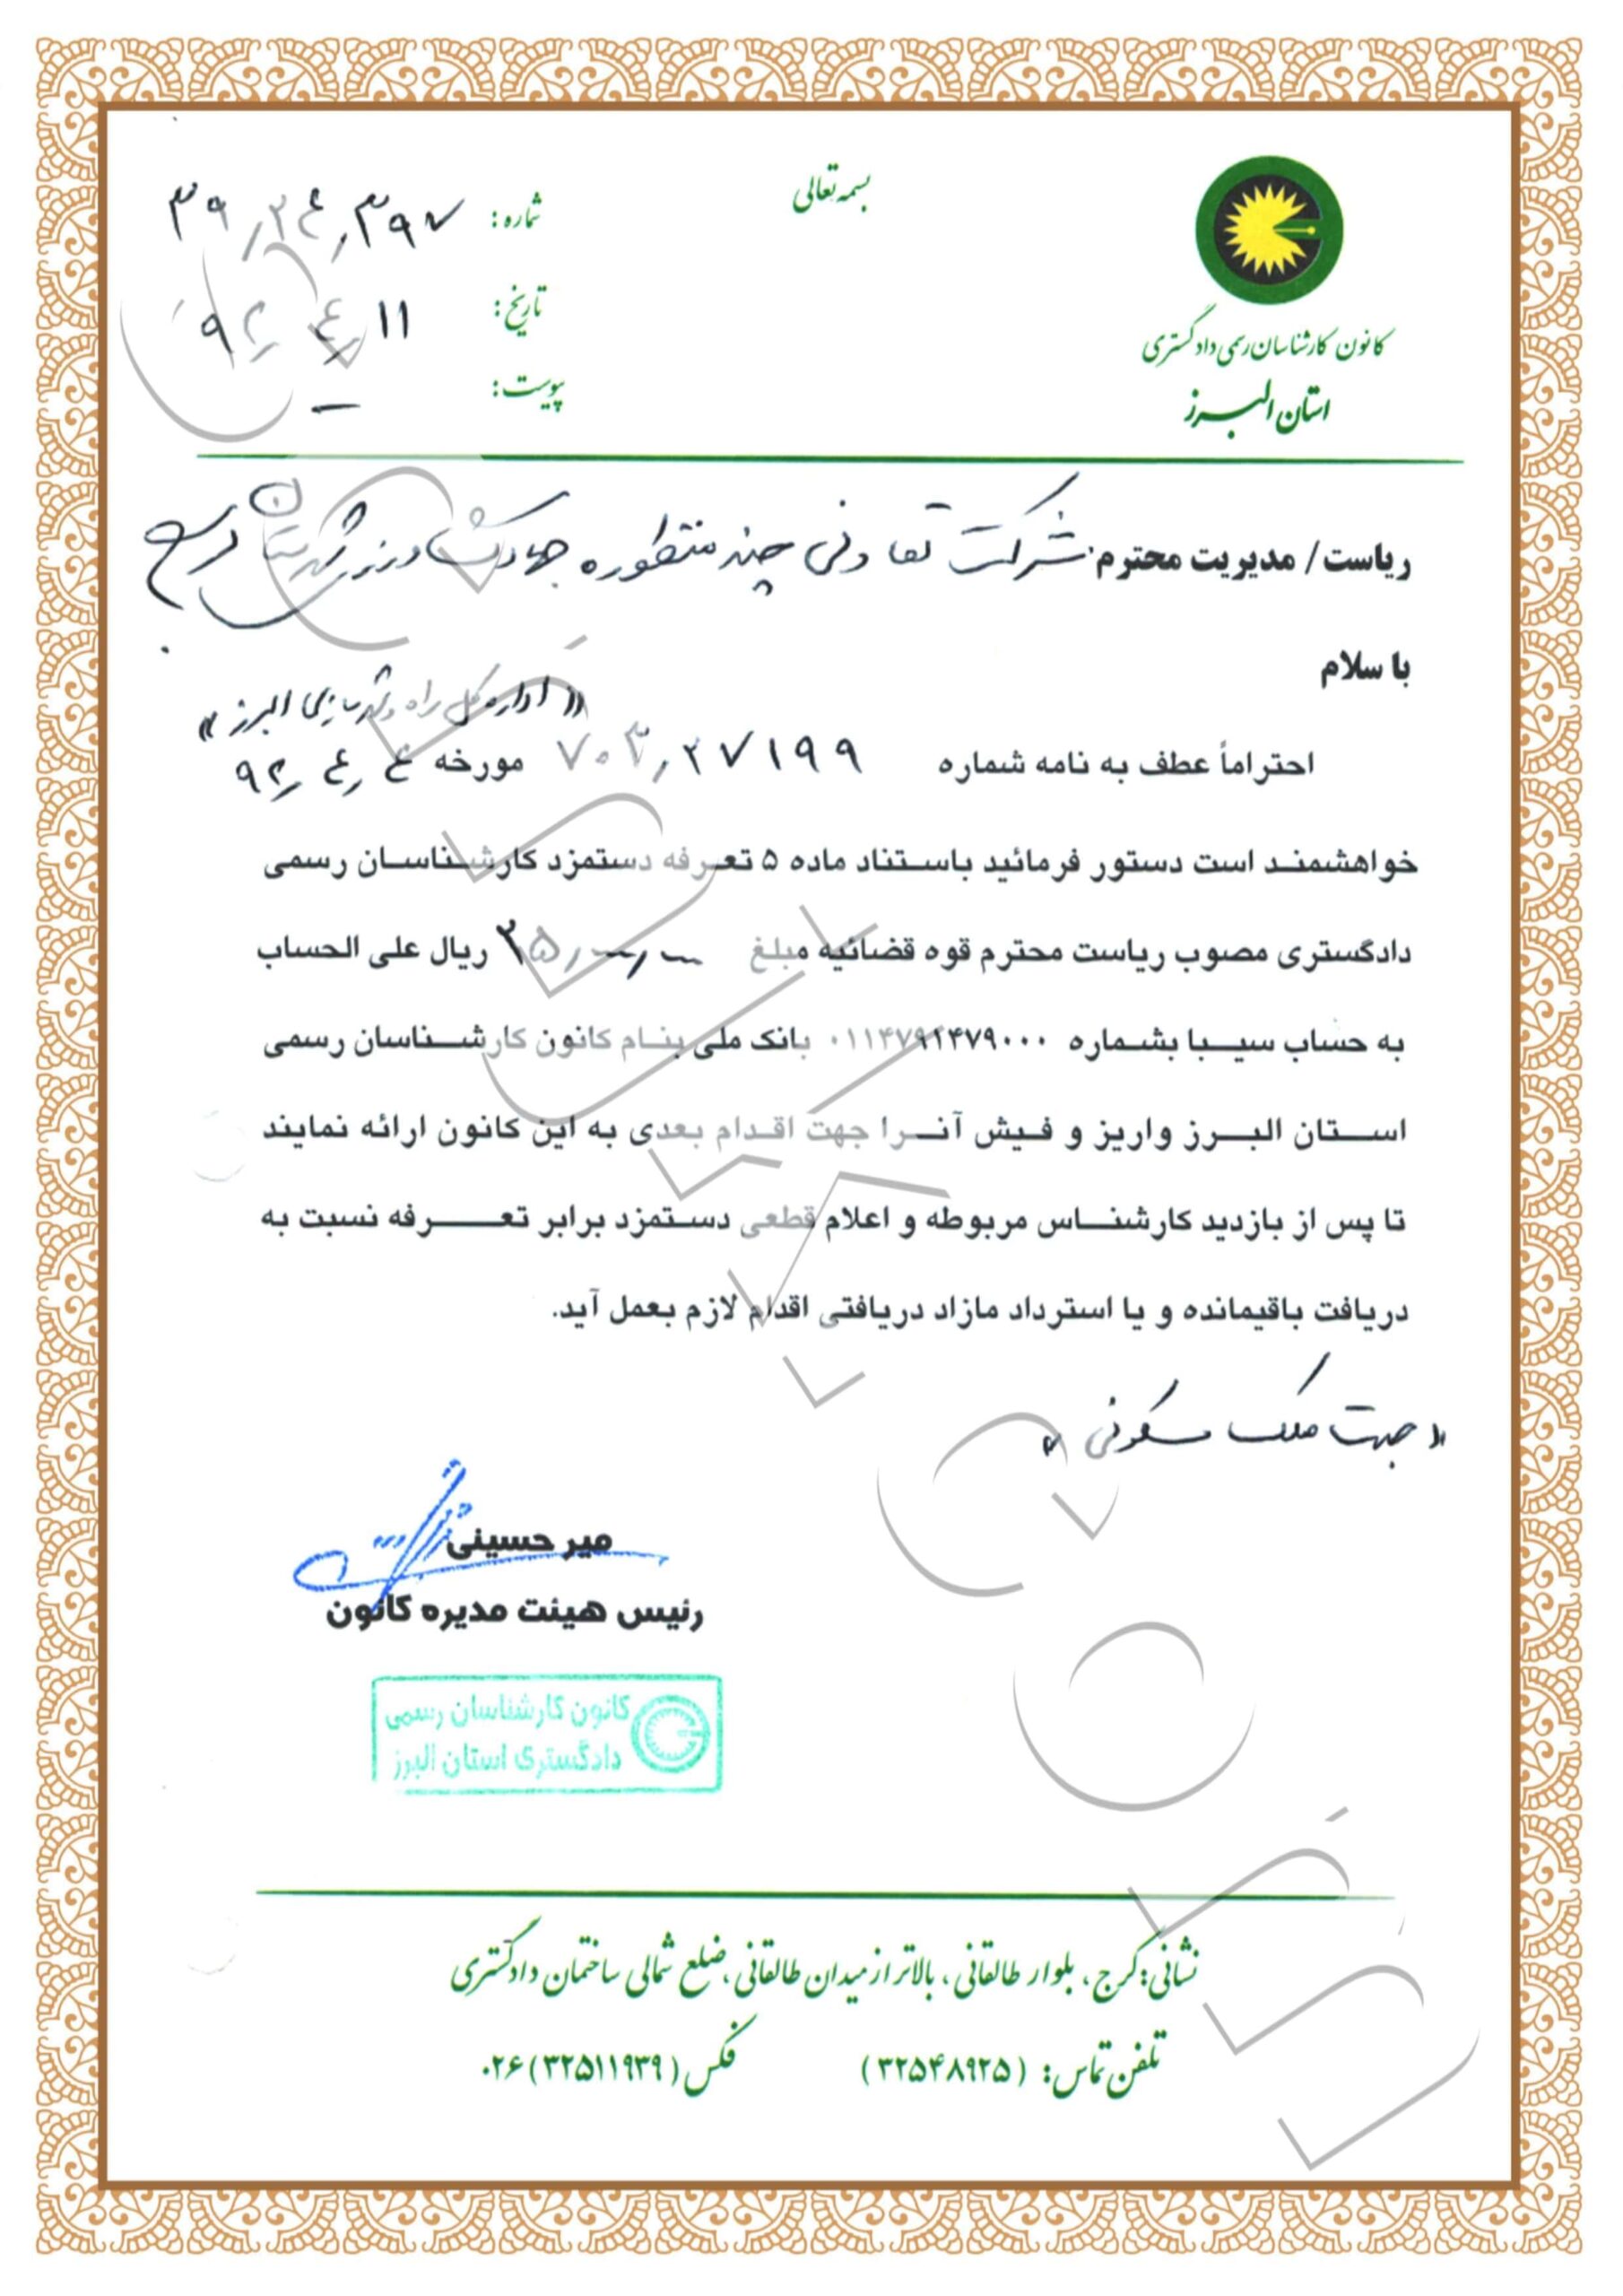 بسمه تعالی
کانون کارشناسان رسمی دادگستری
استان البرز
شماره: ۳۹/۲۴/۳۹۷
تاریخ: ۹۲/۴/۱۱
پیوست: –
ریاست / مدیریت محترم: شرکت تعاونی چند منظوره جهاد کشاورزی شهرستان کرج
با سلام
«اداره کل راه و شهرسازی البرز»
احتراماً عطف به نامه شماره ۷۰۳/۲۷۱۹۹ مورخه ۹۲/۴/۴
خواهشمند است دستور فرمائید باستناد ماده ۵ تعرفه دستمزد کارشناسان رسمی
دادگستری مصوب ریاست محترم قوه قضائیه مبلغ ریال علی الحساب
به حساب سیبا بشماره ۰۱۱۴۷۹۱۴۷۹۰۰۰ بانک ملی بنام کانون کارشناسان رسمی
استان البرز واریز و فیش آنرا جهت اقدام بعدی به این کانون ارائه نمایند
تا پس از بازدید کارشناس مربوطه و اعلام قطعی دستمزد برابر تعرفه نسبت به
دریافت باقیمانده و یا استرداد مازاد دریافتی اقدام لازم بعمل آید.
«جهت ملک مسکونی»
میر حسینی
رئیس هیئت مدیره کانون
کانون کارشناسان رسمی
دادگستری استان البرز
نشانی: کرج، بلوار طالقانی، بالاتر از میدان طالقانی، ضلع شمالی ساختمان دادگستری
تلفن تماس: (۳۲۵۴۸۹۲۵) فکس (۳۲۵۱۱۹۳۹) ۰۲۶